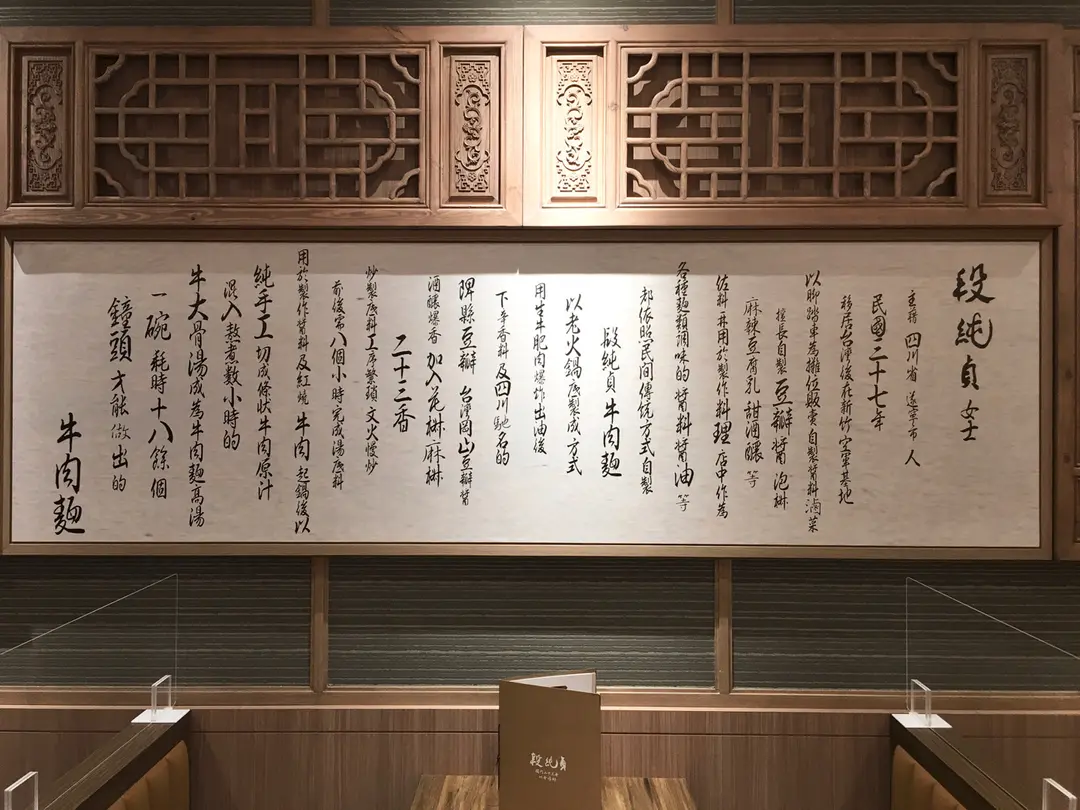 段純貞 女士
主籍 四川省 遂寧市人
民國二十七年
移居台灣後在新竹空軍基地
以腳踏車為攤位販賣自製醬料滷菜
擅長自製豆瓣醬 泡椒
麻辣豆腐乳 甜酒釀 等
佐料再用於製作料理 店中作為
各種麵類調味的醬料醬油 等
都依照民間傳統方式自製
段純貞牛肉麵
以老火鍋底製成方式
用生牛肥肉爆炸出油後
下辛香料及四川馳名的
郫縣豆瓣 台灣岡山豆瓣醬
酒釀爆香 加入花椒麻椒
二十三香
炒製底料工序繁瑣 文火慢炒
前後需八個小時完成湯底料
用於製作醬料及紅燒 牛肉 起鍋後以
純手工切成條狀牛肉原汁
混入熬煮數小時的
牛大骨湯成為牛肉麵高湯
一碗 耗時十八餘個
鐘頭才能做出的
牛肉麵
段純貞